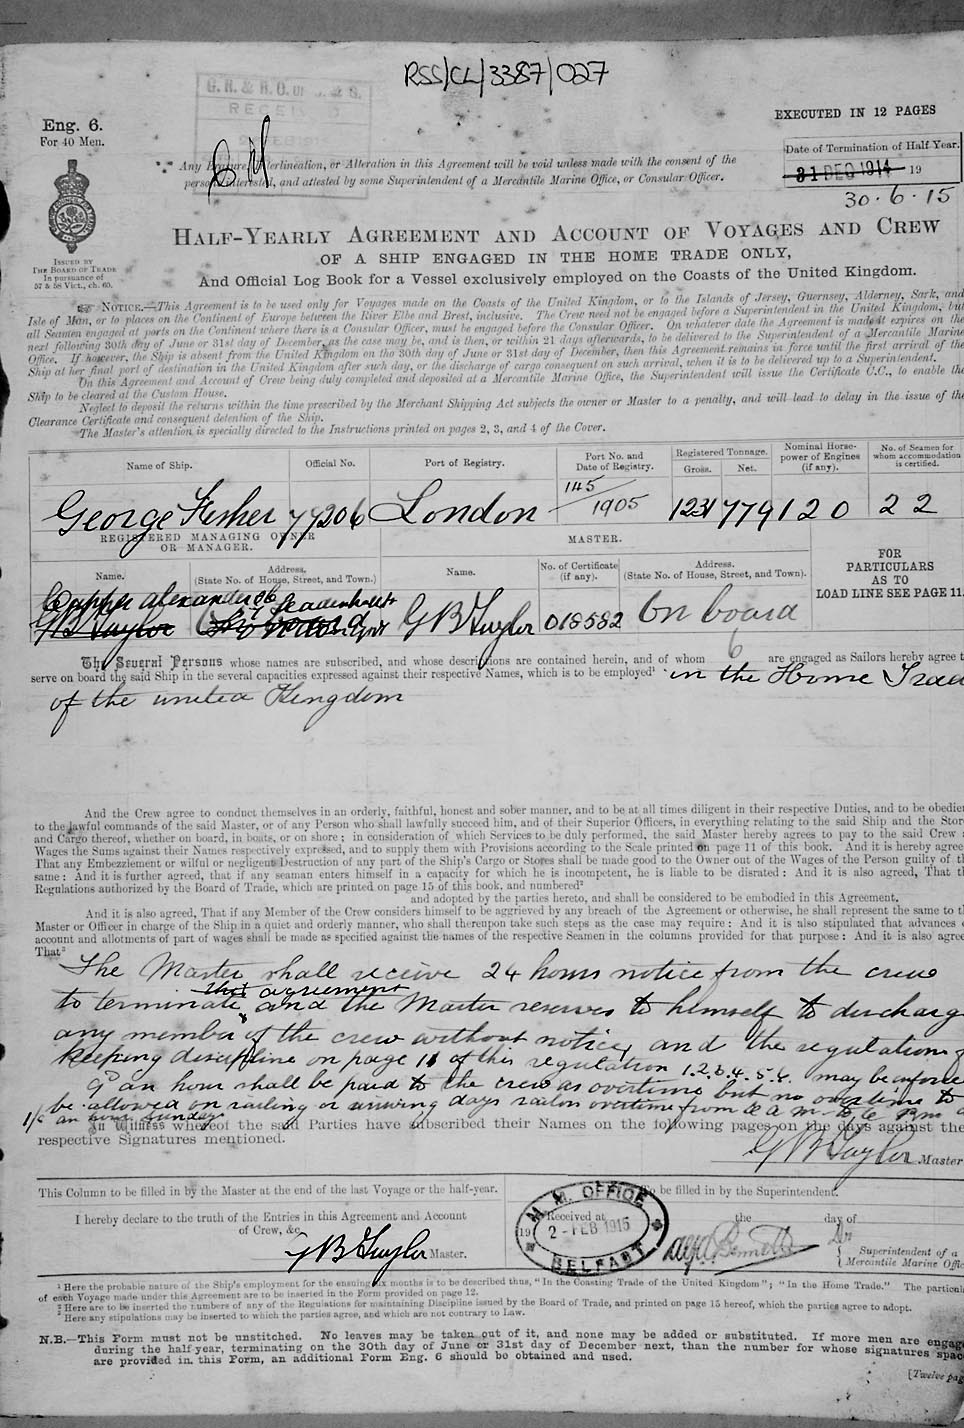 RSS/CL/3387/027
G.R. & R.O. OF S. & S.
RECEIVED
Eng. 6.
For 40 Men.
EXECUTED IN 12 PAGES
Date of Termination of Half Year.
31 DEC 1914 19
30.6.15
Any Erasure, Interlineation, or Alteration in this Agreement will be void unless made with the consent of the
persons interested, and attested by some Superintendent of a Mercantile Marine Office, or Consular Officer.
ISSUED BY
THE BOARD OF TRADE
In pursuance of
57 & 58 Vict., ch. 60.
HALF-YEARLY AGREEMENT AND ACCOUNT OF VOYAGES AND CREW
OF A SHIP ENGAGED IN THE HOME TRADE ONLY,
And Official Log Book for a Vessel exclusively employed on the Coasts of the United Kingdom.
NOTICE.—This Agreement is to be used only for Voyages made on the Coasts of the United Kingdom, or to the Islands of Jersey, Guernsey, Alderney, Sark, and
Isle of Man, or to places on the Continent of Europe between the River Elbe and Brest, inclusive. The Crew need not be engaged before a Superintendent in the United Kingdom, but
all Seamen engaged at ports on the Continent where there is a Consular Officer, must be engaged before the Consular Officer. On whatever date the Agreement is made it expires on the
next following 30th day of June or 31st day of December, as the case may be, and is then, or within 21 days afterwards, to be delivered to the Superintendent of a Mercantile Marine
Office. If however, the Ship is absent from the United Kingdom on the 30th day of June or 31st day of December, then this Agreement remains in force until the first arrival of the
Ship at her final port of destination in the United Kingdom after such day, or the discharge of cargo consequent on such arrival, when it is to be delivered up to a Superintendent.
On this Agreement and Account of Crew being duly completed and deposited at a Mercantile Marine Office, the Superintendent will issue the Certificate C.C., to enable the
Ship to be cleared at the Custom House.
Neglect to deposit the returns within the time prescribed by the Merchant Shipping Act subjects the owner or Master to a penalty, and will lead to delay in the issue of the
Clearance Certificate and consequent detention of the Ship.
The Master's attention is specially directed to the Instructions printed on pages 2, 3, and 4 of the Cover.
Name of Ship. Official No. Port of Registry. Port No. and Date of Registry. Registered Tonnage. Gross. Net. Nominal Horse-power of Engines (if any). No. of Seamen for whom accommodation is certified.
George Fisher 77206 London 145/1905 1231 779 120 22
REGISTERED MANAGING OWNER
OR MANAGER.
MASTER.
FOR
PARTICULARS
AS TO
LOAD LINE SEE PAGE 11.
Name. Address. (State No. of House, Street, and Town.) Name. No. of Certificate (if any). Address. (State No. of House, Street, and Town).
Capper Alexander & Co Leadenhall St
G B Taylor G B Taylor 018582 On board
The Several Persons whose names are subscribed, and whose descriptions are contained herein, and of whom 6 are engaged as Sailors hereby agree t
serve on board the said Ship in the several capacities expressed against their respective Names, which is to be employed¹ in the Home Trade
of the united Kingdom
And the Crew agree to conduct themselves in an orderly, faithful, honest and sober manner, and to be at all times diligent in their respective Duties, and to be obedien
to the lawful commands of the said Master, or of any Person who shall lawfully succeed him, and of their Superior Officers, in everything relating to the said Ship and the Store
and Cargo thereof, whether on board, in boats, or on shore; in consideration of which Services to be duly performed, the said Master hereby agrees to pay to the said Crew a
Wages the Sums against their Names respectively expressed, and to supply them with Provisions according to the Scale printed on page 11 of this book. And it is hereby agree
That any Embezzlement or wilful or negligent Destruction of any part of the Ship's Cargo or Stores shall be made good to the Owner out of the Wages of the Person guilty of th
same: And it is further agreed, that if any seaman enters himself in a capacity for which he is incompetent, he is liable to be disrated: And it is also agreed, That th
Regulations authorized by the Board of Trade, which are printed on page 15 of this book, and numbered²
and adopted by the parties hereto, and shall be considered to be embodied in this Agreement.
And it is also agreed, That if any Member of the Crew considers himself to be aggrieved by any breach of the Agreement or otherwise, he shall represent the same to th
Master or Officer in charge of the Ship in a quiet and orderly manner, who shall thereupon take such steps as the case may require: And it is also stipulated that advances o
account and allotments of part of wages shall be made as specified against the names of the respective Seamen in the columns provided for that purpose: And it is also agree
That³
The Master shall receive 24 hours notice from the crew
this agreement
to terminate and the Master reserves to himself to discharge
any member of the crew without notice, and the regulations f
keeping discipline on page 11 of this regulation 1.2.3.4.5.6. may be inforce
9d an hour shall be paid to the crew as overtime but no overtime to
be allowed on sailing or arriving days sailors overtime from 6 a m to 6 Pm
1/- an hour Sunday
In Witness whereof the said Parties have subscribed their Names on the following pages on the days against the
respective Signatures mentioned.
G B Taylor Master
This Column to be filled in by the Master at the end of the last Voyage or the half-year.
To be filled in by the Superintendent.
I hereby declare to the truth of the Entries in this Agreement and Account
of Crew, &c.
G B Taylor Master.
Received at the day of
19
M. M. OFFICE
2 - FEB 1915
BELFAST
Superintendent of a
Mercantile Marine Offic
¹ Here the probable nature of the Ship's employment for the ensuing six months is to be described thus, "In the Coasting Trade of the United Kingdom"; "In the Home Trade." The particula
of each Voyage made under this Agreement are to be inserted in the Form provided on page 12.
² Here are to be inserted the numbers of any of the Regulations for maintaining Discipline issued by the Board of Trade, and printed on page 15 hereof, which the parties agree to adopt.
³ Here any stipulations may be inserted to which the parties agree, and which are not contrary to Law.
N.B.—This Form must not be unstitched. No leaves may be taken out of it, and none may be added or substituted. If more men are engage
during the half year, terminating on the 30th day of June or 31st day of December next, than the number for whose signatures spac
are provided in this Form, an additional Form Eng. 6 should be obtained and used.
[Twelve pag